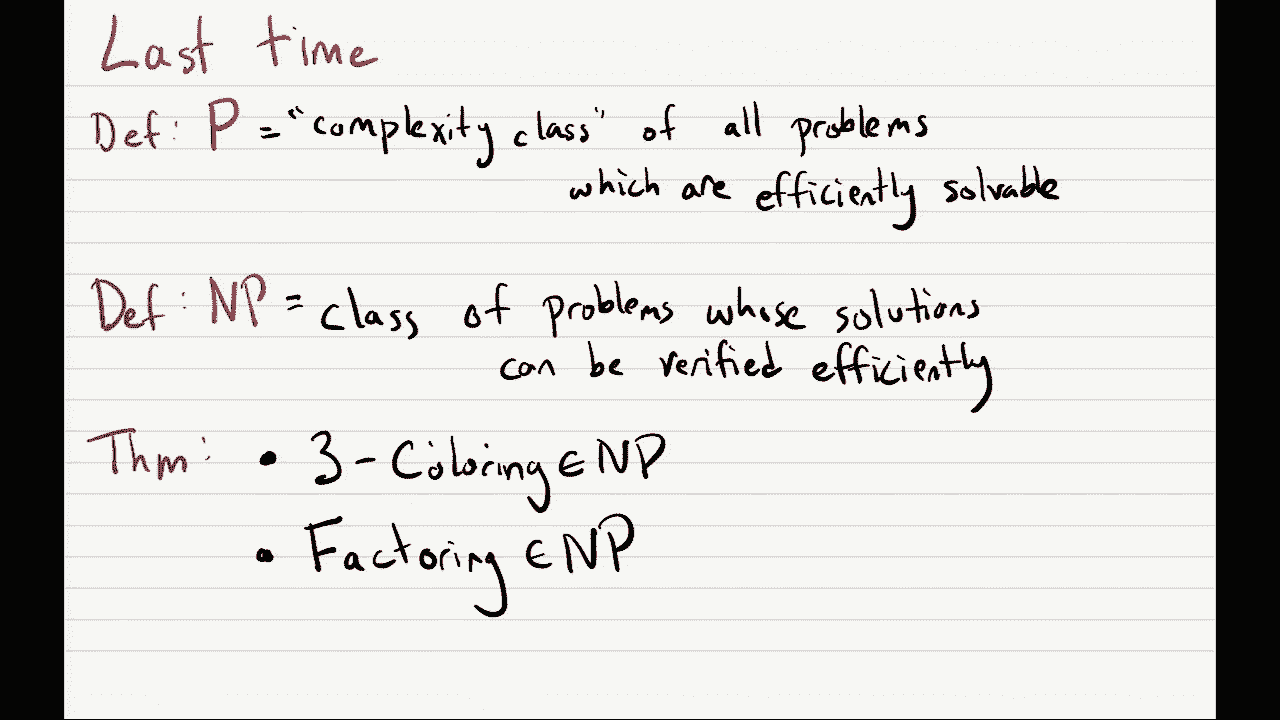 Last time
Def: P = "complexity class" of all problems
which are efficiently solvable
Def: NP = class of problems whose solutions
can be verified efficiently
Thm: • 3-Coloring ∈ NP
• Factoring ∈ NP